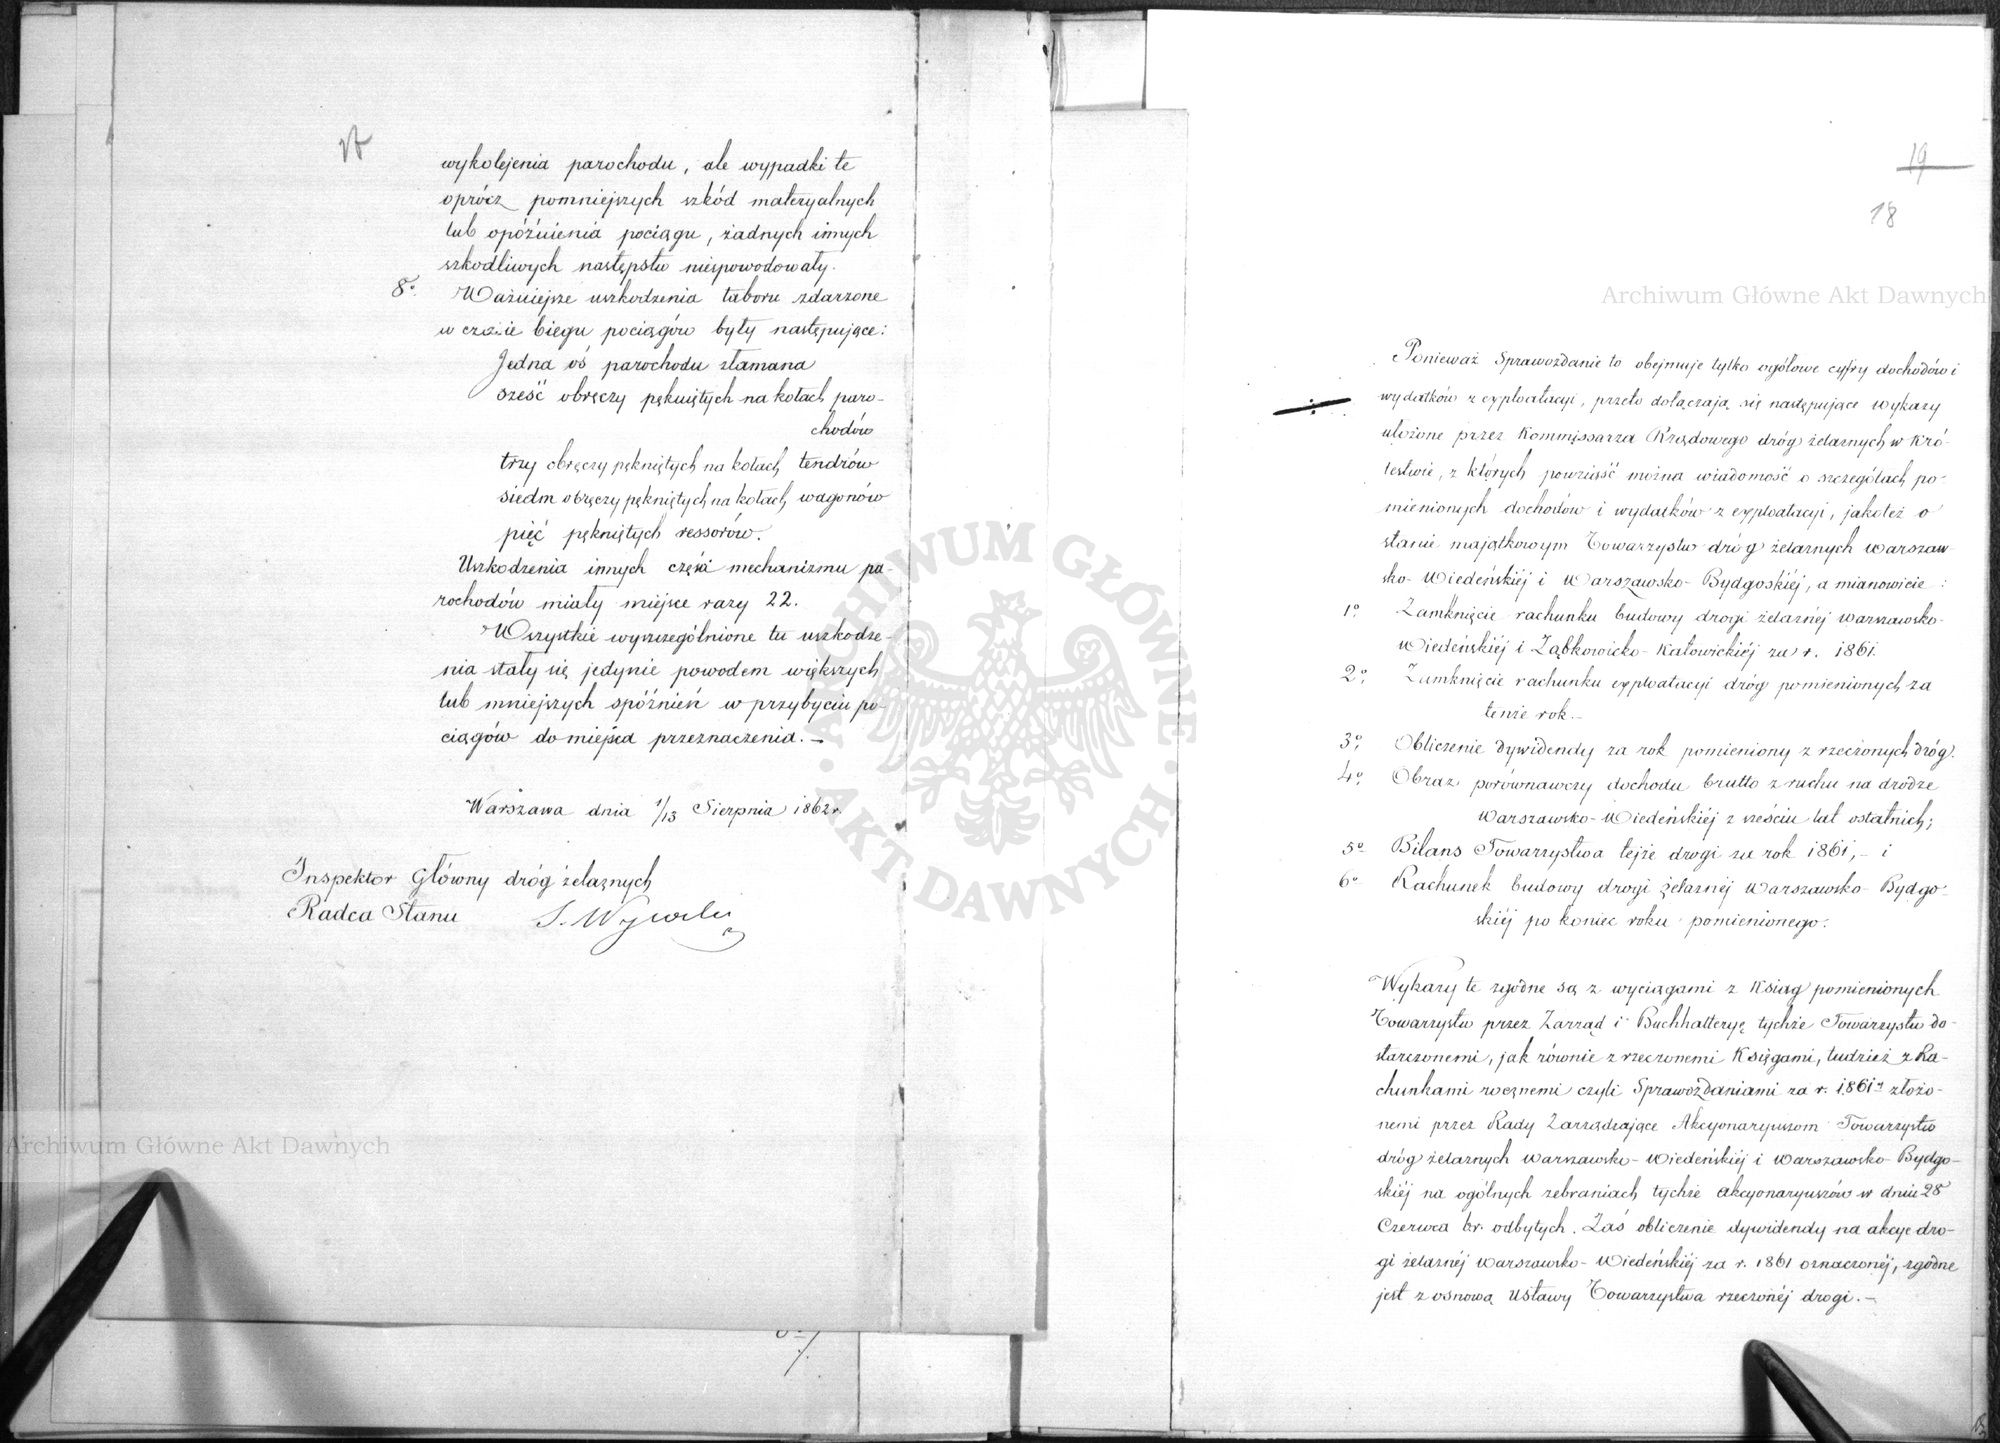 wykolejenia parochodu, ale wypadki te
oprócz pomniejszych szkód materyalnych
lub opóźnienia pociągu, żadnych innych
szkodliwych następstw niespowodowały.
8º Ważniejsze uszkodzenia taboru zdarzone
w czasie biegu pociągów były następujące:
Jedna oś parochodu złamana
sześć obręczy pękniętych na kołach paro-
chodów
trzy obręczy pękniętych na kołach tendrów
siedm obręczy pękniętych na kołach wagonów
pięć pękniętych ressorów.
Uszkodzenia innych części mechanizmu pa-
rochodów miały miejsce razy 22.
Wszystkie wyszczególnione tu uszkodze-
nia stały się jedynie powodem większych
lub mniejszych spóźnień w przybyciu po-
ciągów do miejsca przeznaczenia. —
Warszawa dnia 1/13 Sierpnia 1862 r.
Inspektor Główny dróg żelaznych
Radca Stanu
19
18
Ponieważ Sprawozdanie to obejmuje tylko ogółowe cyfry dochodów i
wydatków z exploatacyi, przeto dołączają się następujące wykazy
ułożone przez Kommissarza Rządowego dróg żelaznych w Kró-
lestwie, z których powziąść można wiadomość o szczegółach po-
mienionych dochodów i wydatków z exploatacyi, jakoteż o
stanie majątkowym Towarzystw dróg żelaznych Warszaw-
sko-Wiedeńskiéj i Warszawsko-Bydgoskiéj, a mianowicie:
1º Zamknięcie rachunku budowy drogi żelaznéj Warszawsko-
Wiedeńskiéj i Ząbkowicko-Katowickiéj za r. 1861.
2º Zamknięcie rachunku exploatacyi dróg pomienionych za
tenże rok. —
3º Obliczenie dywidendy za rok pomieniony z rzeczonych dróg.
4º Obraz porównawczy dochodu brutto z ruchu na drodze
Warszawsko-Wiedeńskiéj z sześciu lat ostatnich;
5º Bilans Towarzystwa tejże drogi za rok 1861, — i
6º Rachunek budowy drogi żelaznéj Warszawsko-Bydgo-
skiéj po koniec roku pomienionego.
Wykazy te zgodne są z wyciągami z Ksiąg pomienionych
Towarzystw przez Zarząd i Buchhalteryę tychże Towarzystw do-
starczonemi, jak równie z rzeczonemi Księgami, tudzież z Ra-
chunkami rocznemi czyli Sprawozdaniami za r. 1861 złożo-
nemi przez Rady Zarządzające Akcyonaryuszom Towarzystw
dróg żelaznych Warszawsko-Wiedeńskiéj i Warszawsko-Bydgo-
skiéj na ogólnych zebraniach tychże akcyonaryuszów w dniu 28
Czerwca br. odbytych. Zaś obliczenie dywidendy na akcye dro-
gi żelaznéj Warszawsko-Wiedeńskiéj za r. 1861 oznaczonéj, zgodne
jest z osnową Ustawy Towarzystwa rzeczonéj drogi. —
Archiwum Główne Akt Dawnych
Archiwum Główne Akt Dawnych
ARCHIWUM GŁÓWNE · AKT DAWNYCH ·